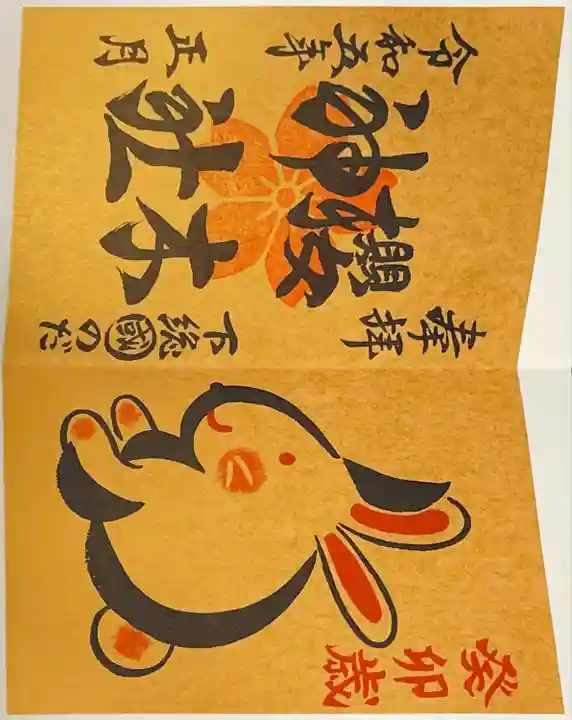 癸卯歳
奉拝 下総國のだ
櫻木
神社
令和五年 正月